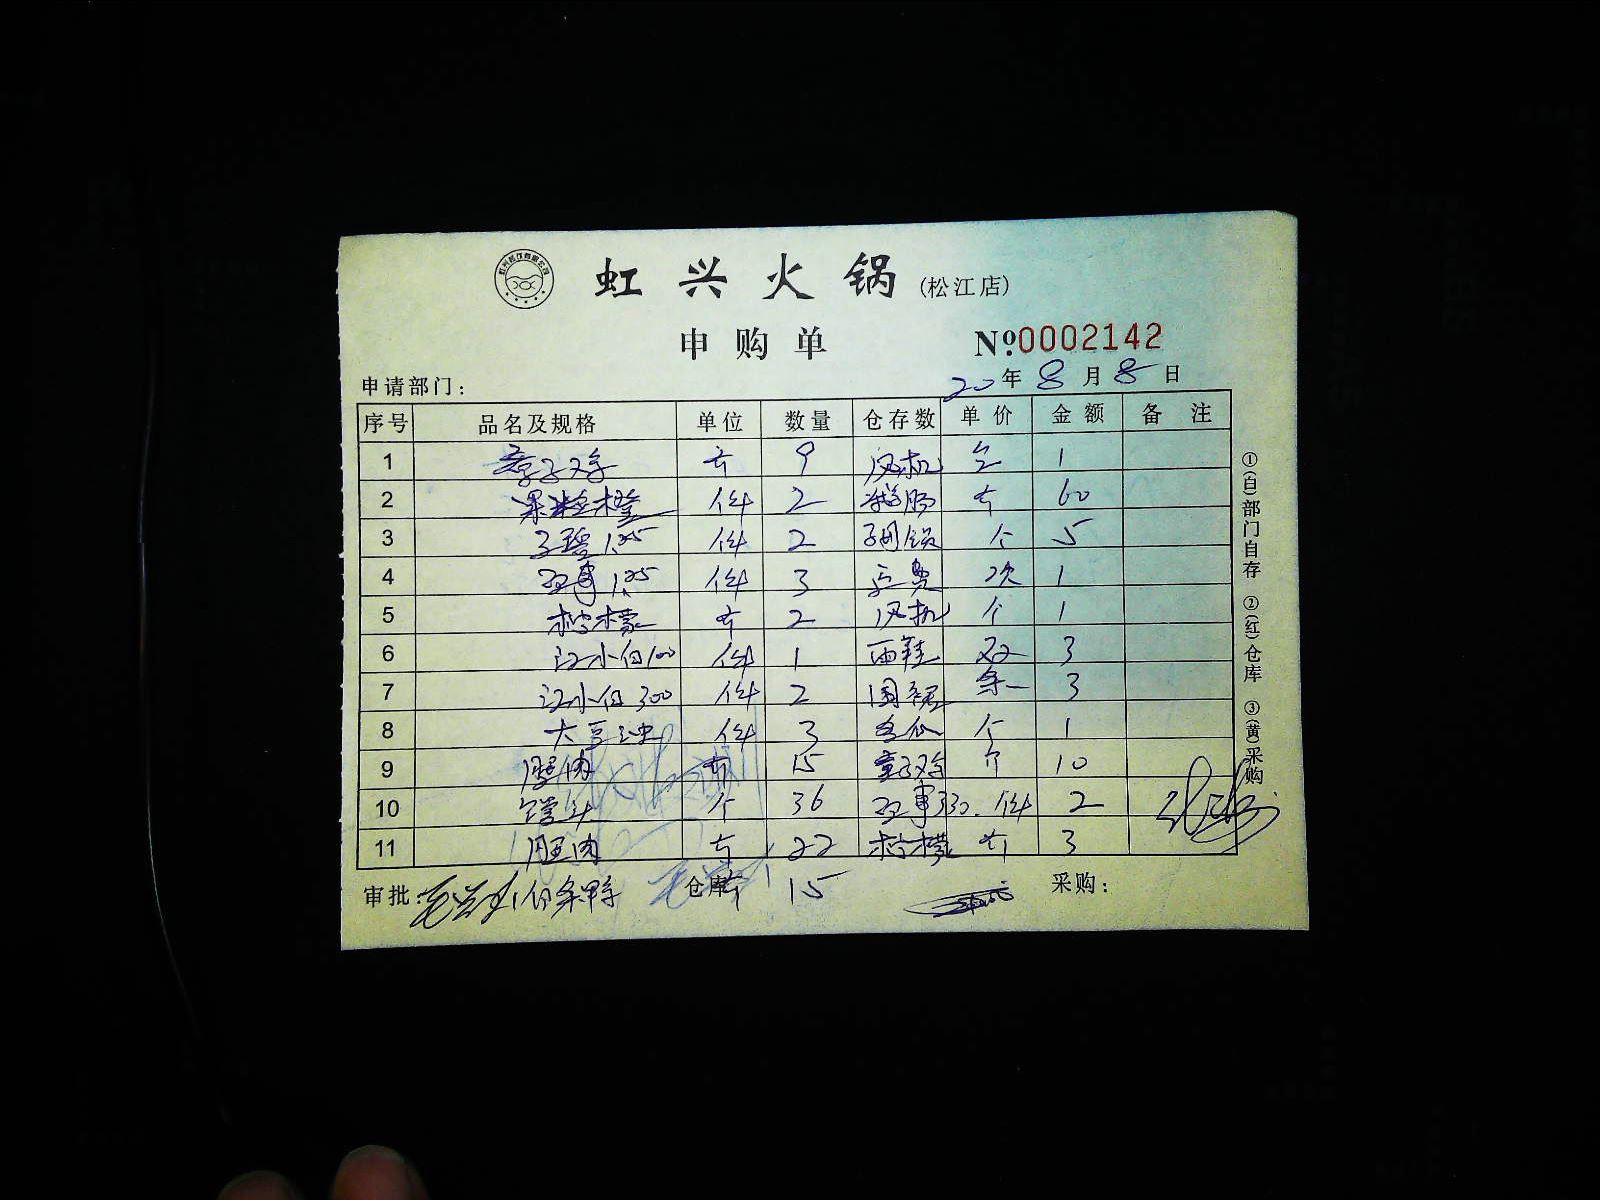 虹兴火锅(松江店)
申购单
Nº0002142
申请部门:
20年8月8日
序号 品名及规格 单位 数量 仓存数 单价 金额 备注
1 童子鸡 斤 9 风机 1
2 果粒橙 件 2 鹅肠 斤 60
3 1.25 件 2 个 5
4 1.25 件 3 运费 次 1
5 柠檬 斤 2 风机 个 1
6 江小白100 件 1 雨鞋 双 3
7 江小白300 件 2 围裙 条 3
8 大豆油 件 3 冬瓜 个 1
9 腿肉 斤 15 童子鸡 个 10
10 馒头 个 36 330. 件 2
11 斤 22 柠檬 斤 3
审批: 仓库 15 采购:
①(白)部门自存 ②(红)仓库 ③(黄)采购